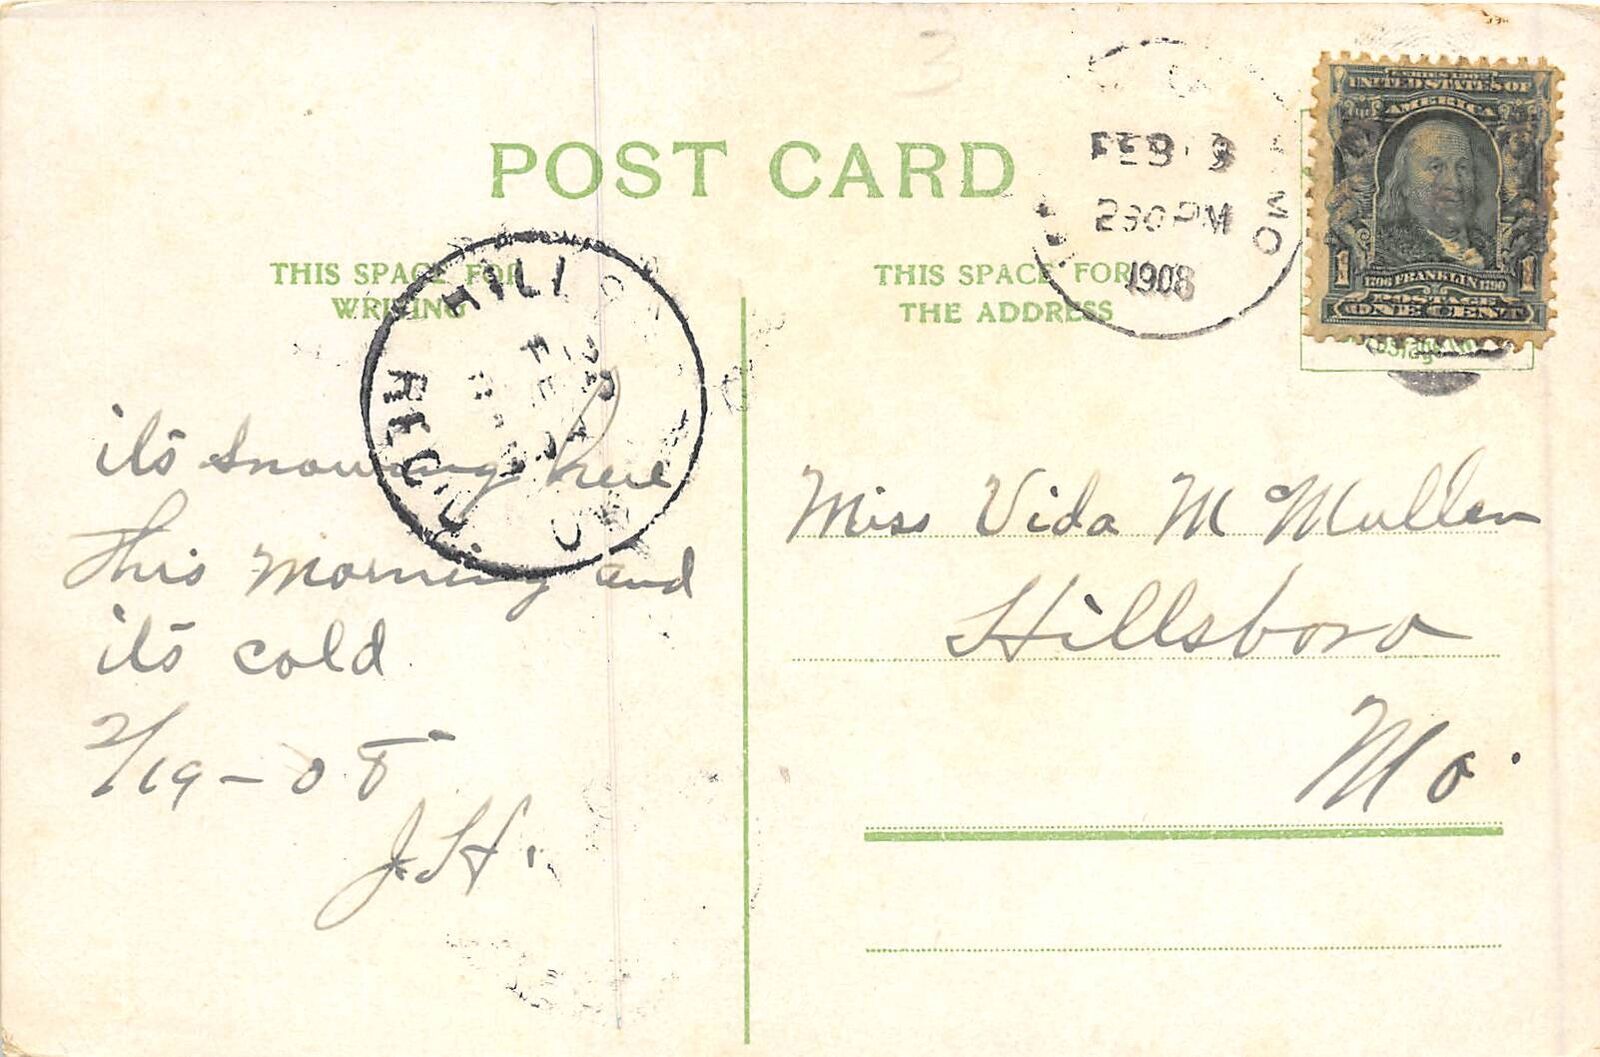 POST CARD
THIS SPACE FOR
WRITING
THIS SPACE FOR
THE ADDRESS
FEB
230 PM
1908
MO
UNITED STATES OF
AMERICA
1706 FRANKLIN 1790
POSTAGE
1 ONE CENT 1
HILL
its snowing here
this morning and
its cold
2/19-08
J.H.
Miss Vida McMullen
Hillsboro
Mo.